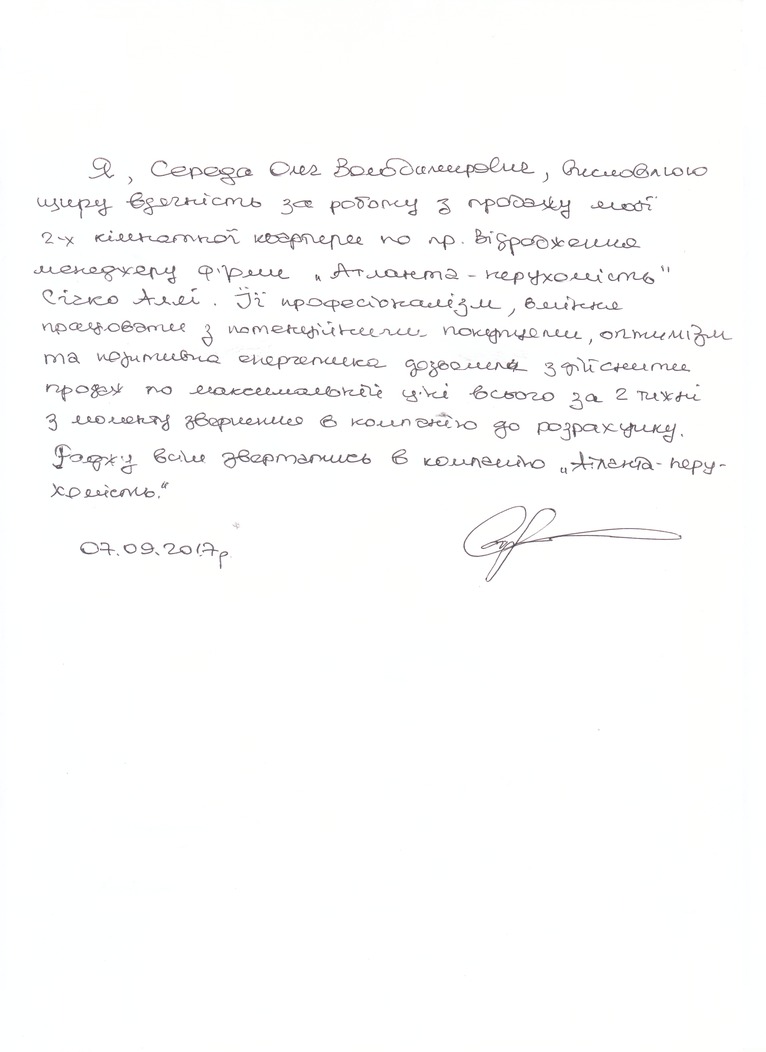 Я, Середа Олег Володимирович, висловлюю
щиру вдячність за роботу з продажу моєї
2-х кімнатної квартири по пр. Відродження
менеджеру фірми „Атланта-нерухомість"
Січко Аллі. Її професіоналізм, вміння
працювати з потенційними покупцями, оптимізм
та позитивна енергетика дозволила здійснити
продаж по максимальній ціні всього за 2 тижні
з моменту звернення в компанію до розрахунку.
Раджу всім звертатись в компанію „Атланта-неру-
хомість."
07.09.2017р.